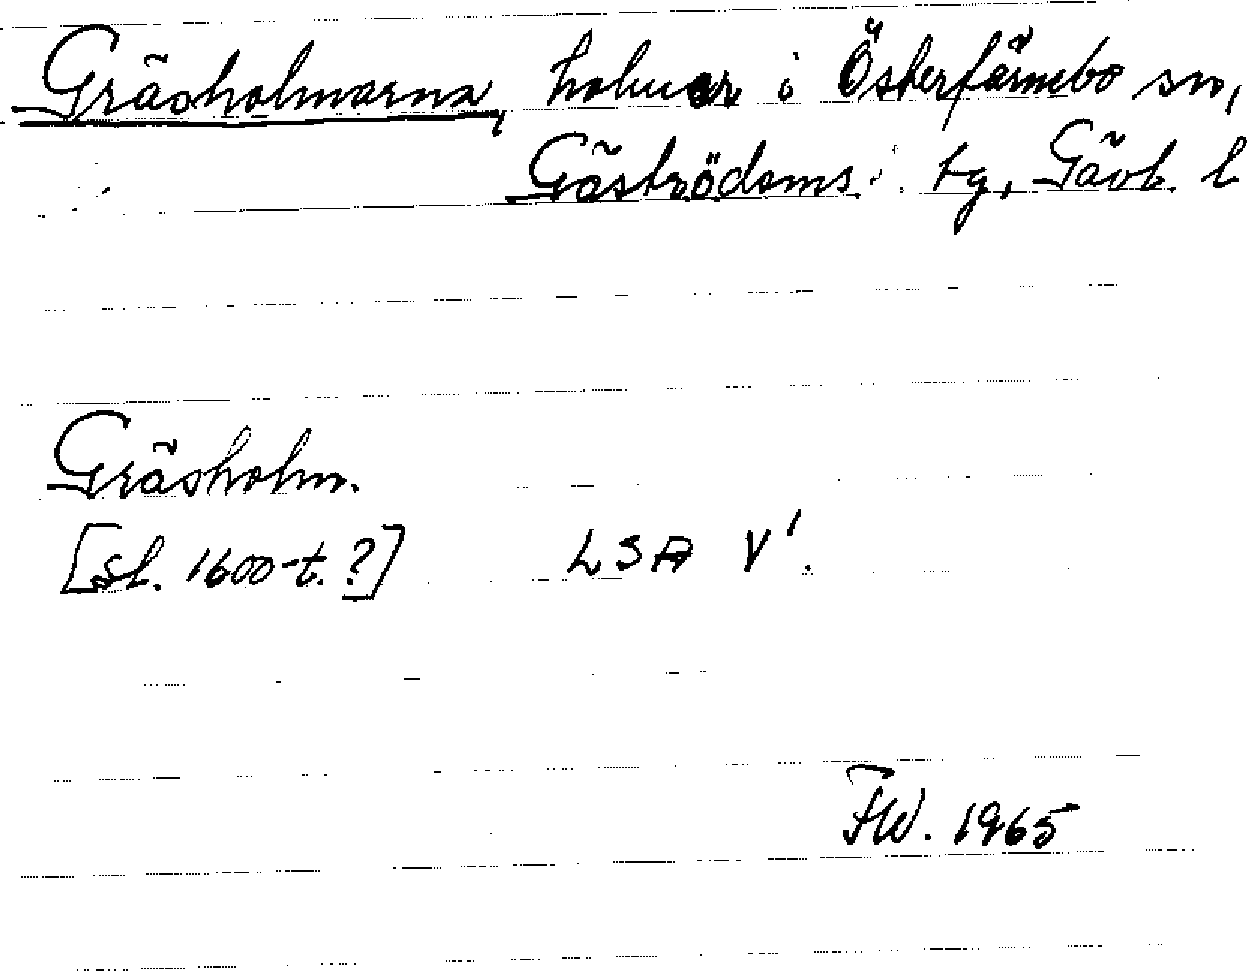 Gräsholmarna, holmar i Österfärnebo sn,
Gäströdoms tg, Gävb. l
Gräsholm.
[sl. 1600-t. ?] LSA V¹.
FW. 1965